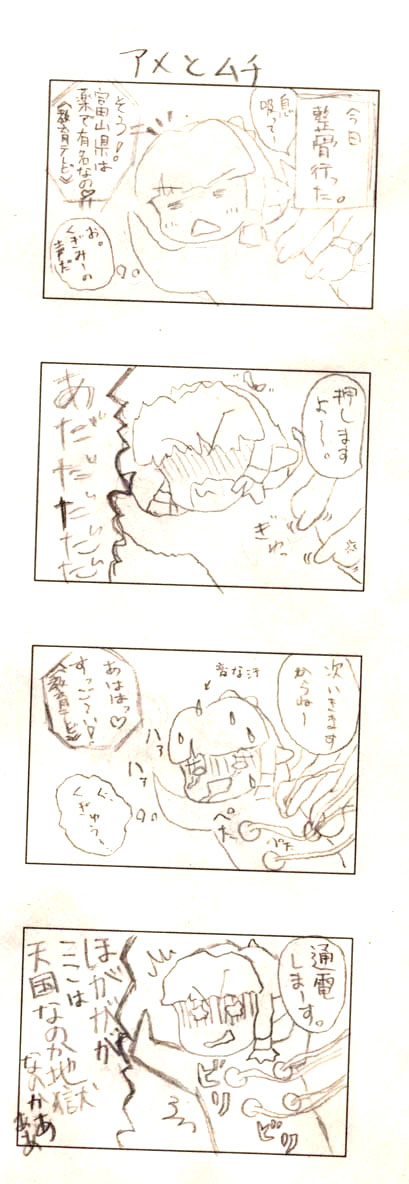 アメとムチ
今日
整骨行った。
息
吸って、
そう!。
富山県は
薬で有名なの♡
《教育テレビ》
お。
くぎみーの
声だ
押します
よー。
ぎゅっ
あだだだだだ
次いきます
からねー
変な汗
あははっ♡
すっごーい!
《教育テレビ》
ハァ
ハァ
ぐ、
くぎゅうぅ
ぺた
ぷた
通電
しまーす。
ビリ
ビリ
ほががが
ここは
天国なのか地獄
なのかぁ
ああ